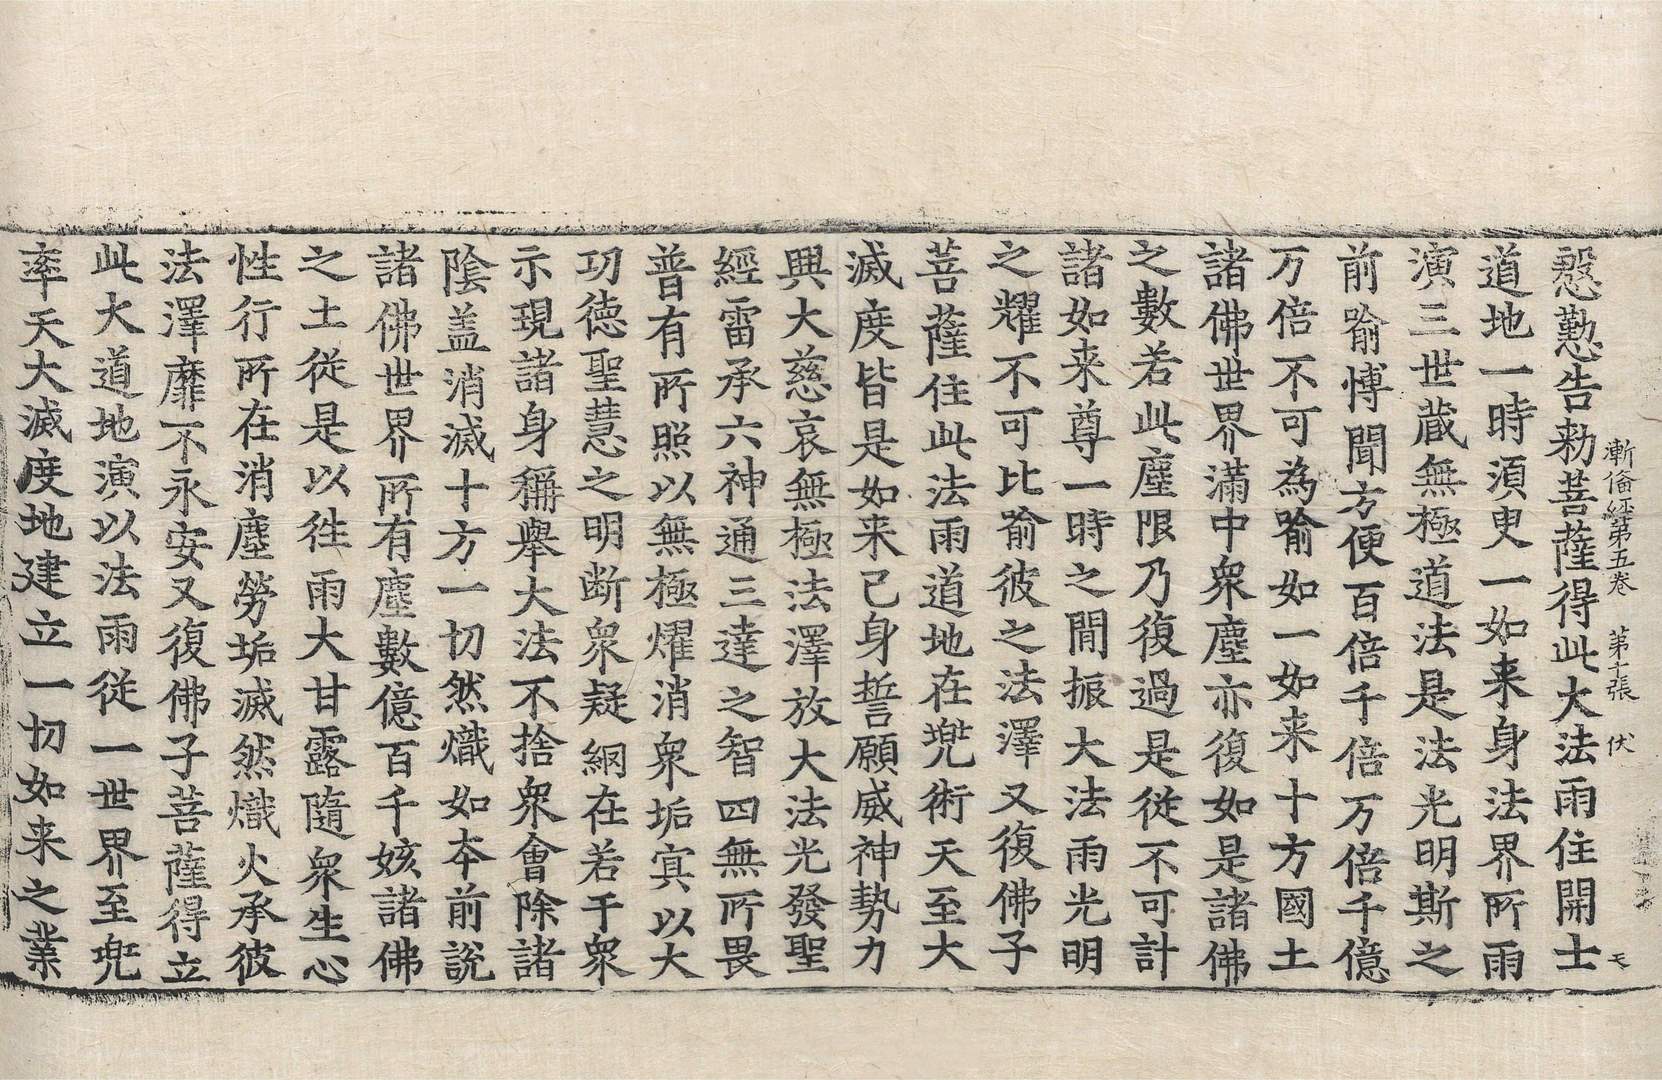 漸俻経第五卷　第十張　伏　モ
慇懃告勑菩薩得此大法雨住開士
道地一時須臾一如来身法界所雨
演三世蔵無極道法是法光明斯之
前喻愽聞方便百倍千倍万倍千億
万倍不可為喻如一如来十方國土
諸佛世界滿中衆塵亦復如是諸佛
之數若此塵限乃復過是従不可計
諸如来尊一時之閒振大法雨光明
之耀不可比喻彼之法澤又復佛子
菩薩住此法雨道地在兠術天至大
滅度皆是如来己身誓願威神勢力
興大慈哀無極法澤放大法光發聖
經雷承六神通三達之智四無所畏
普有所照以無極燿消衆垢㝠以大
功德聖慧之明断衆疑網在若干衆
示現諸身稱舉大法不捨衆會除諸
陰盖消滅十方一切然熾如夲前説
諸佛世界所有塵數億百千姟諸佛
之土従是以徃雨大甘露隨衆生心
性行所在消塵勞垢滅然熾火承彼
法澤靡不永安又復佛子菩薩得立
此大道地演以法雨従一世界至兠
率天大滅度地建立一切如来之業